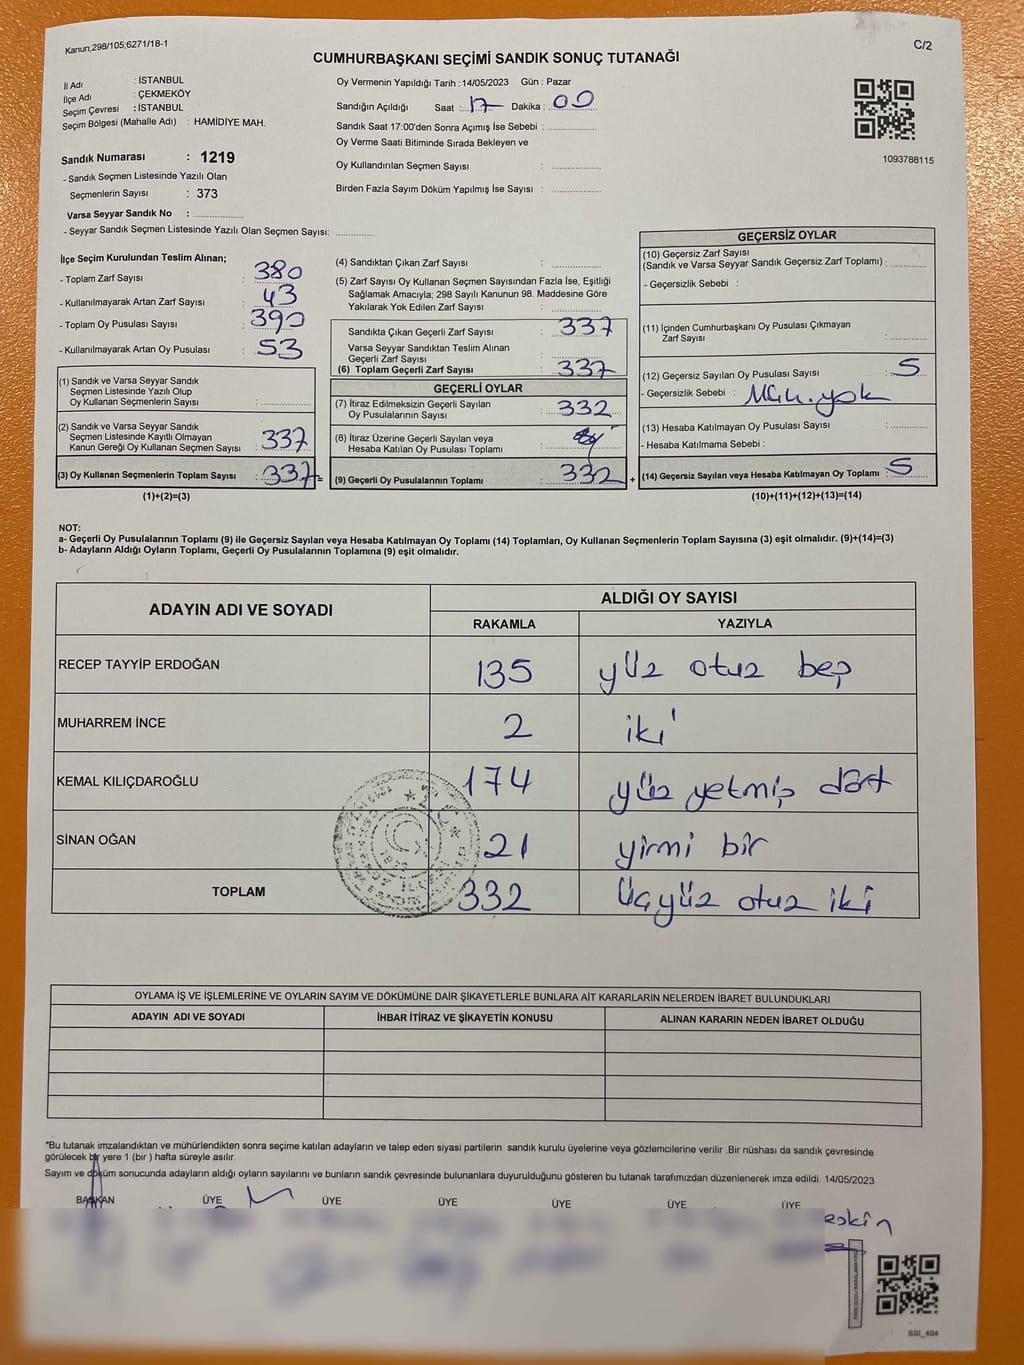 Kanun;298/105;6271/18-1
C/2
CUMHURBAŞKANI SEÇİMİ SANDIK SONUÇ TUTANAĞI
İl Adı : İSTANBUL
İlçe Adı : ÇEKMEKÖY
Seçim Çevresi : İSTANBUL
Seçim Bölgesi (Mahalle Adı) : HAMİDİYE MAH.
Sandık Numarası : 1219
- Sandık Seçmen Listesinde Yazılı Olan
Seçmenlerin Sayısı : 373
Varsa Seyyar Sandık No :
- Seyyar Sandık Seçmen Listesinde Yazılı Olan Seçmen Sayısı:
Oy Vermenin Yapıldığı Tarih : 14/05/2023 Gün : Pazar
Sandığın Açıldığı Saat : 17 Dakika : 00
Sandık Saat 17:00'den Sonra Açımış İse Sebebi :
Oy Verme Saati Bitiminde Sırada Bekleyen ve
Oy Kullandırılan Seçmen Sayısı :
Birden Fazla Sayım Döküm Yapılmış İse Sayısı :
1093788115
İlçe Seçim Kurulundan Teslim Alınan;
- Toplam Zarf Sayısı : 380
- Kullanılmayarak Artan Zarf Sayısı : 43
- Toplam Oy Pusulası Sayısı : 390
- Kullanılmayarak Artan Oy Pusulası : 53
(1) Sandık ve Varsa Seyyar Sandık
Seçmen Listesinde Yazılı Olup
Oy Kullanan Seçmenlerin Sayısı :
(2) Sandık ve Varsa Seyyar Sandık
Seçmen Listesinde Kayıtlı Olmayan
Kanun Gereği Oy Kullanan Seçmen Sayısı : 337
(3) Oy Kullanan Seçmenlerin Toplam Sayısı : 337 =
(1)+(2)=(3)
(4) Sandıktan Çıkan Zarf Sayısı :
(5) Zarf Sayısı Oy Kullanan Seçmen Sayısından Fazla İse, Eşitliği
Sağlamak Amacıyla; 298 Sayılı Kanunun 98. Maddesine Göre
Yakılarak Yok Edilen Zarf Sayısı :
Sandıkta Çıkan Geçerli Zarf Sayısı : 337
Varsa Seyyar Sandıktan Teslim Alınan
Geçerli Zarf Sayısı :
(6) Toplam Geçerli Zarf Sayısı : 337
GEÇERLİ OYLAR
(7) İtiraz Edilmeksizin Geçerli Sayılan
Oy Pusulalarının Sayısı : 332
(8) İtiraz Üzerine Geçerli Sayılan veya
Hesaba Katılan Oy Pusulası Toplamı :
(9) Geçerli Oy Pusulalarının Toplamı : 332 +
GEÇERSİZ OYLAR
(10) Geçersiz Zarf Sayısı
(Sandık ve Varsa Seyyar Sandık Geçersiz Zarf Toplamı) :
- Geçersizlik Sebebi :
(11) İçinden Cumhurbaşkanı Oy Pusulası Çıkmayan
Zarf Sayısı :
(12) Geçersiz Sayılan Oy Pusulası Sayısı : 5
- Geçersizlik Sebebi : Müh. yok
(13) Hesaba Katılmayan Oy Pusulası Sayısı :
- Hesaba Katılmama Sebebi :
(14) Geçersiz Sayılan veya Hesaba Katılmayan Oy Toplamı : 5
(10)+(11)+(12)+(13)=(14)
NOT:
a- Geçerli Oy Pusulalarının Toplamı (9) ile Geçersiz Sayılan veya Hesaba Katılmayan Oy Toplamı (14) Toplamları, Oy Kullanan Seçmenlerin Toplam Sayısına (3) eşit olmalıdır. (9)+(14)=(3)
b- Adayların Aldığı Oyların Toplamı, Geçerli Oy Pusulalarının Toplamına (9) eşit olmalıdır.
ADAYIN ADI VE SOYADI
ALDIĞI OY SAYISI
RAKAMLA YAZIYLA
RECEP TAYYİP ERDOĞAN 135 yüz otuz beş
MUHARREM İNCE 2 iki
KEMAL KILIÇDAROĞLU 174 yüz yetmiş dört
SİNAN OĞAN 21 yirmi bir
TOPLAM 332 üçyüz otuz iki
OYLAMA İŞ VE İŞLEMLERİNE VE OYLARIN SAYIM VE DÖKÜMÜNE DAİR ŞİKAYETLERLE BUNLARA AİT KARARLARIN NELERDEN İBARET BULUNDUKLARI
ADAYIN ADI VE SOYADI İHBAR İTİRAZ VE ŞİKAYETİN KONUSU ALINAN KARARIN NEDEN İBARET OLDUĞU
"Bu tutanak imzalandıktan ve mühürlendikten sonra seçime katılan adayların ve talep eden siyasi partilerin sandık kurulu üyelerine veya gözlemcilerine verilir .Bir nüshası da sandık çevresinde
görülecek bir yere 1 (bir ) hafta süreyle asılır.
Sayım ve döküm sonucunda adayların aldığı oyların sayılarını ve bunların sandık çevresinde bulunanlara duyurulduğunu gösteren bu tutanak tarafımızdan düzenlenerek imza edildi. 14/05/2023
BAŞKAN ÜYE ÜYE ÜYE ÜYE ÜYE ÜYE
eskin
SSI_404